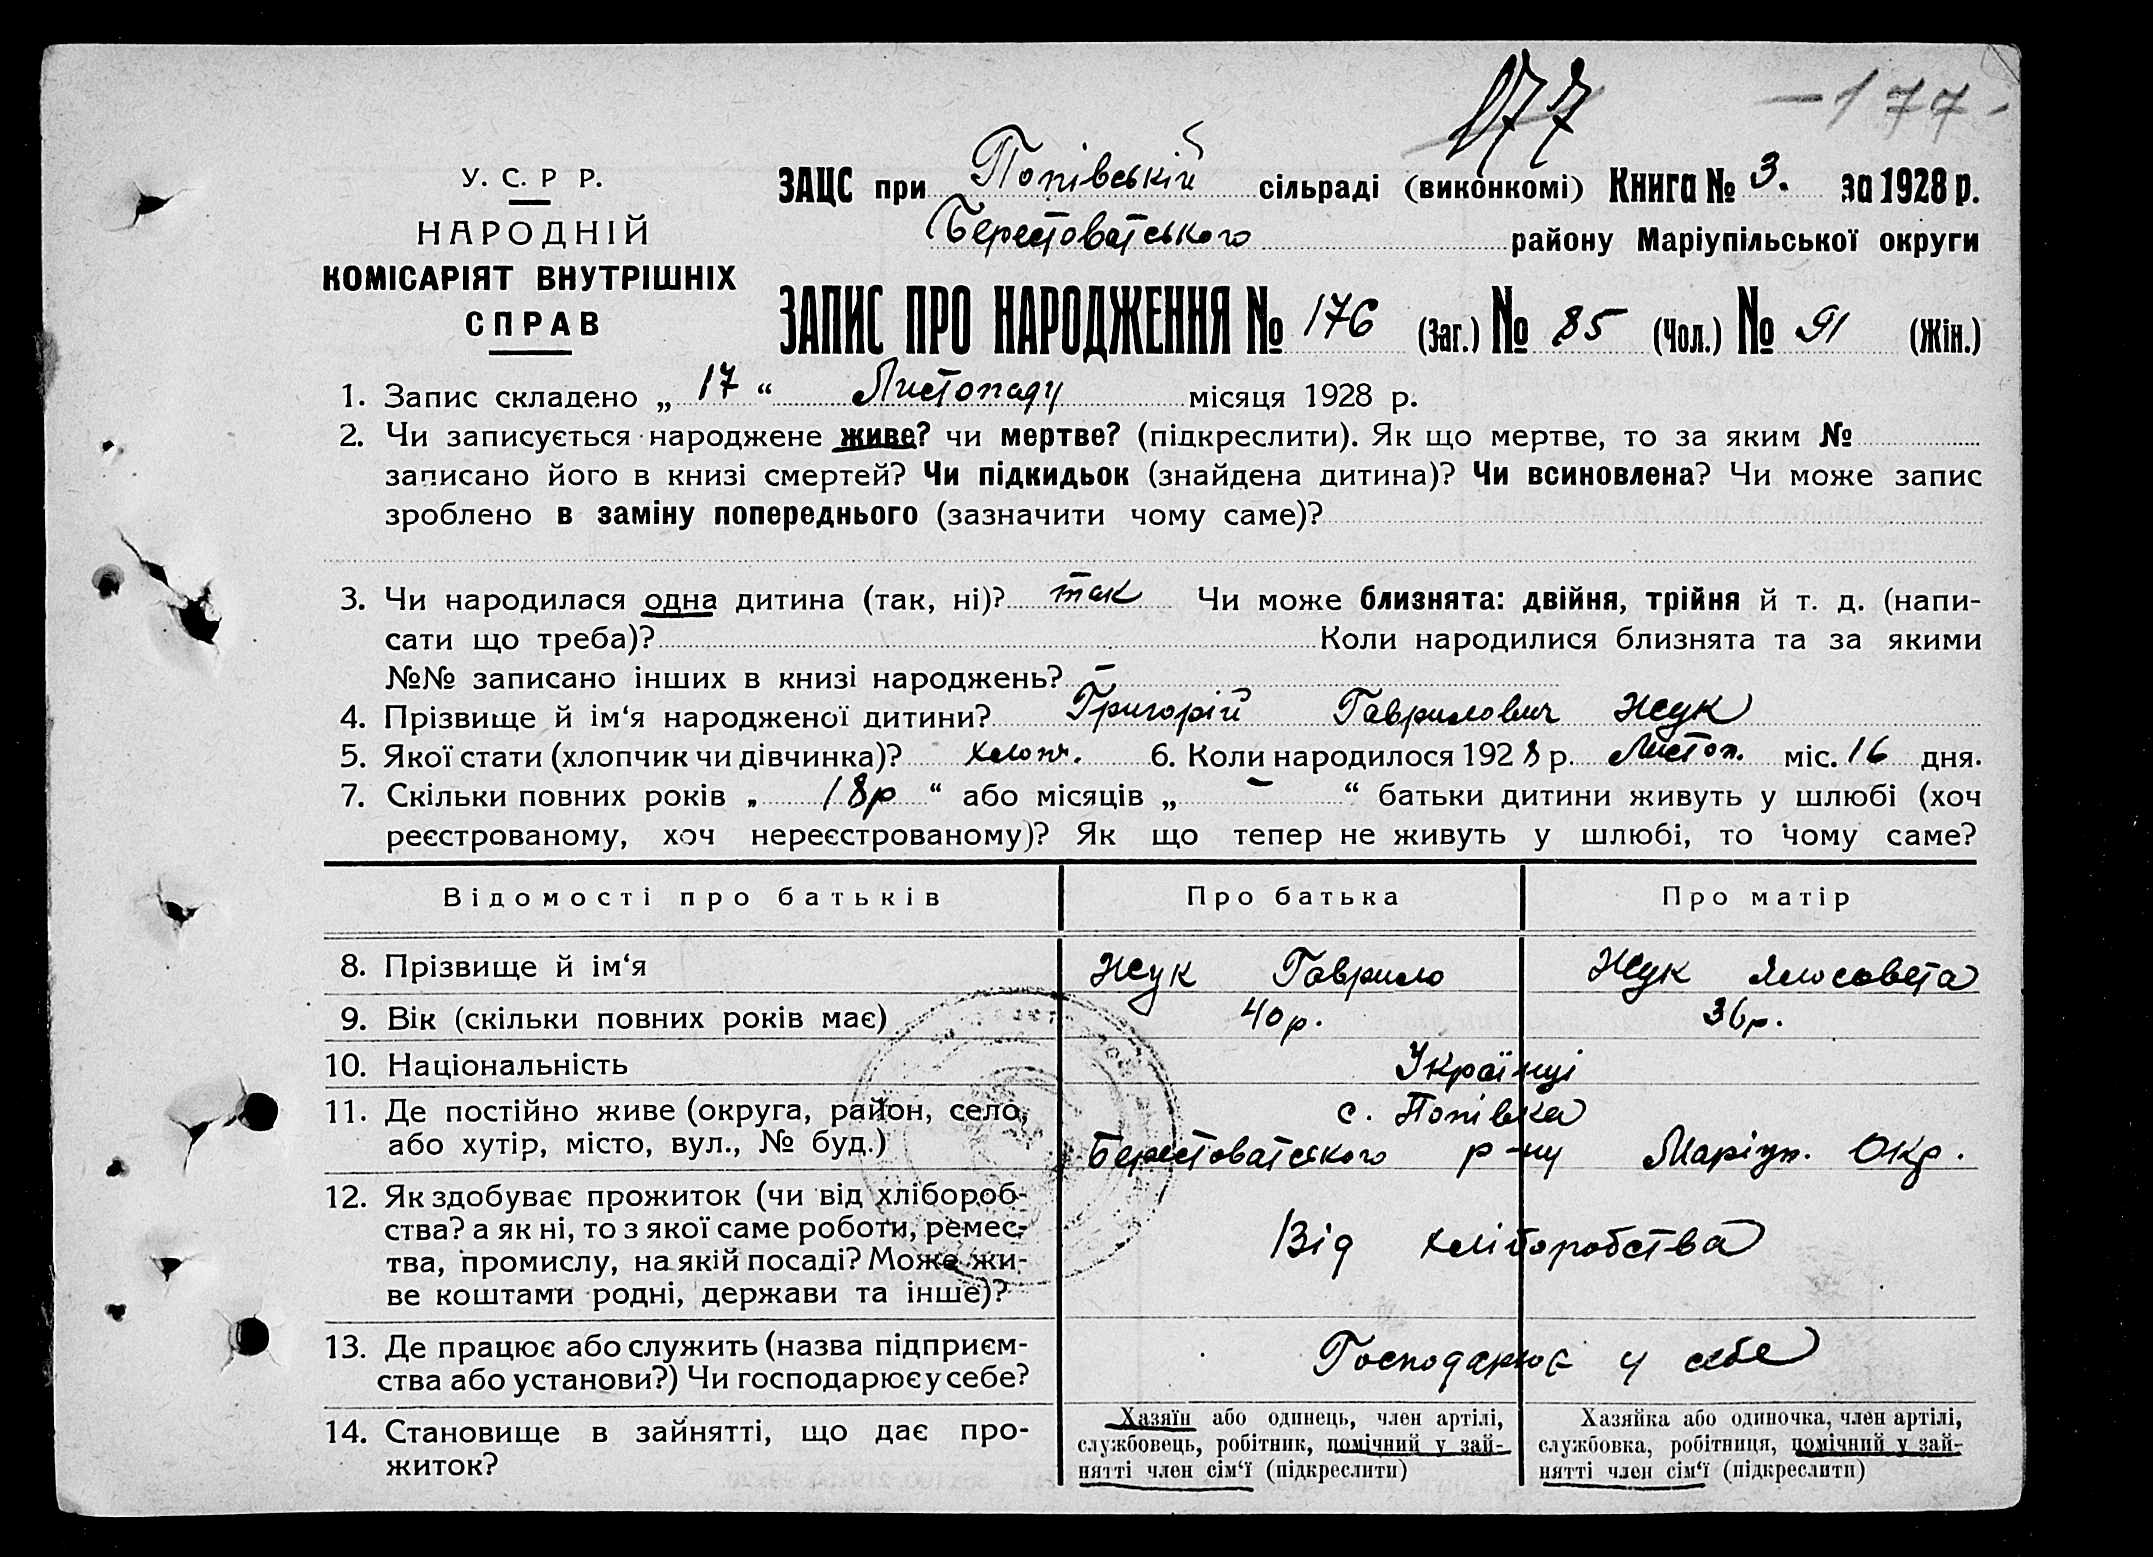 177
— 177 -
У. С. Р Р.
НАРОДНІЙ
КОМІСАРІЯТ ВНУТРІШНІХ
СПРАВ
ЗАЦС при Попівській сільраді (виконкомі) Книга № 3. за 1928 р.
Берестоватського району Маріупільської округи
ЗАПИС ПРО НАРОДЖЕННЯ № 176 (Заг.) № 85 (Чол.) № 91 (Жін.)
1. Запис складено „ 17 “ Листопаду місяця 1928 р.
2. Чи записується народжене живе? чи мертве? (підкреслити). Як що мертве, то за яким №
записано його в книзі смертей? Чи підкидьок (знайдена дитина)? Чи всиновлена? Чи може запис
зроблено в заміну попереднього (зазначити чому саме)?
3. Чи народилася одна дитина (так, ні)? так Чи може близнята: двійня, трійня й т. д. (напи-
сати що треба)? Коли народилися близнята та за якими
№№ записано інших в книзі народжень? —
4. Прізвище й ім‘я народженої дитини? Григорій Гаврилович Жук
5. Якої стати (хлопчик чи дівчинка)? хлопч. 6. Коли народилося 1928 р. Листоп. міс. 16 дня.
7. Скільки повних років „ 18р “ або місяців „ — “ батьки дитини живуть у шлюбі (хоч
реєстрованому, хоч нереєстрованому)? Як що тепер не живуть у шлюбі, то чому саме?
Відомості про батьків Про батька Про матір
8. Прізвище й ім‘я Жук Гаврило Жук Ялосовета
9. Вік (скільки повних років має) 40р. 36р.
10. Національність Українці
11. Де постійно живе (округа, район, село, с. Попівка
або хутір, місто, вул., № буд.) Берестоватського р-ну Маріуп. Окр.
12. Як здобуває прожиток (чи від хлібороб-
ства? а як ні, то з якої саме роботи, ремес-
тва, промислу, на якій посаді? Може жи-
ве коштами родні, держави та інше)? Від хліборобства
13. Де працює або служить (назва підприєм-
ства або установи?) Чи господарює у себе? Господарює у себе
14. Становище в зайнятті, що дає про-
житок?
Хазяїн або одинець, член артілі,
службовець, робітник, помічний у зай-
нятті член сім‘ї (підкреслити)
Хазяйка або одиночка, член артілі,
службовка, робітниця, помічний у зай-
нятті член сім‘ї (підкреслити)